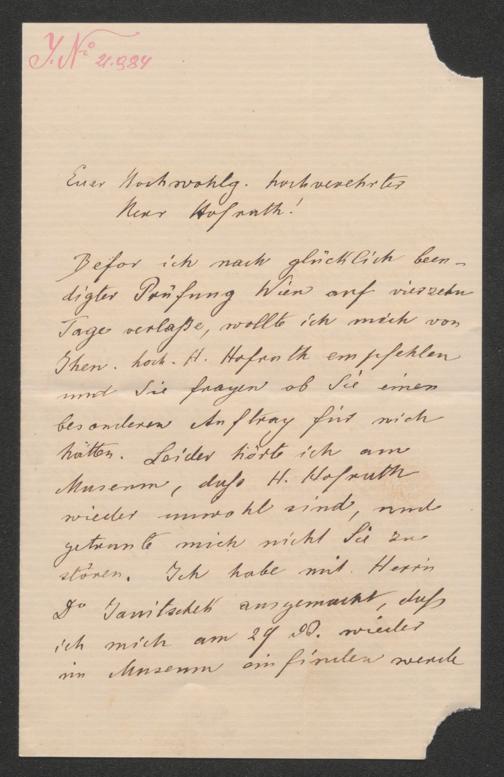 J.N° 21.984
Euer Hochwohlg. hochverehrter
Herr Hofrath!
Befor ich nach glücklich been-
digter Prüfung Wien auf vierzehn
Tage verlaße, wollte ich mich von
Ihen. hoch. H. Hofrath empfehlen
und Sie fragen ob Sie einen
besonderen Auftrag für mich
hätten. Leider hörte ich am
Museum, daß H. Hofrath
wieder unwohl sind, und
getraute mich nicht Sie zu
stören. Ich habe mit Herrn
Dr Janitschek ausgemacht, daß
ich mich am 29 wieder
im Museum einfinden werde